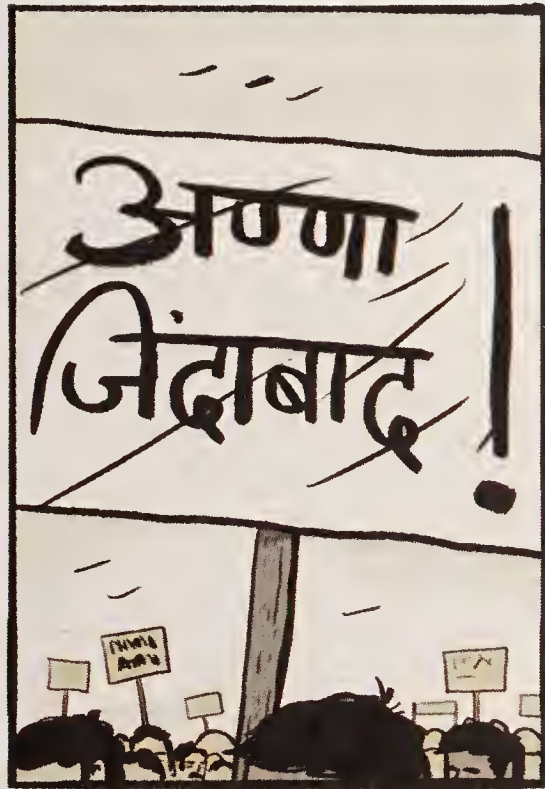 अण्णा
जिंदाबाद !